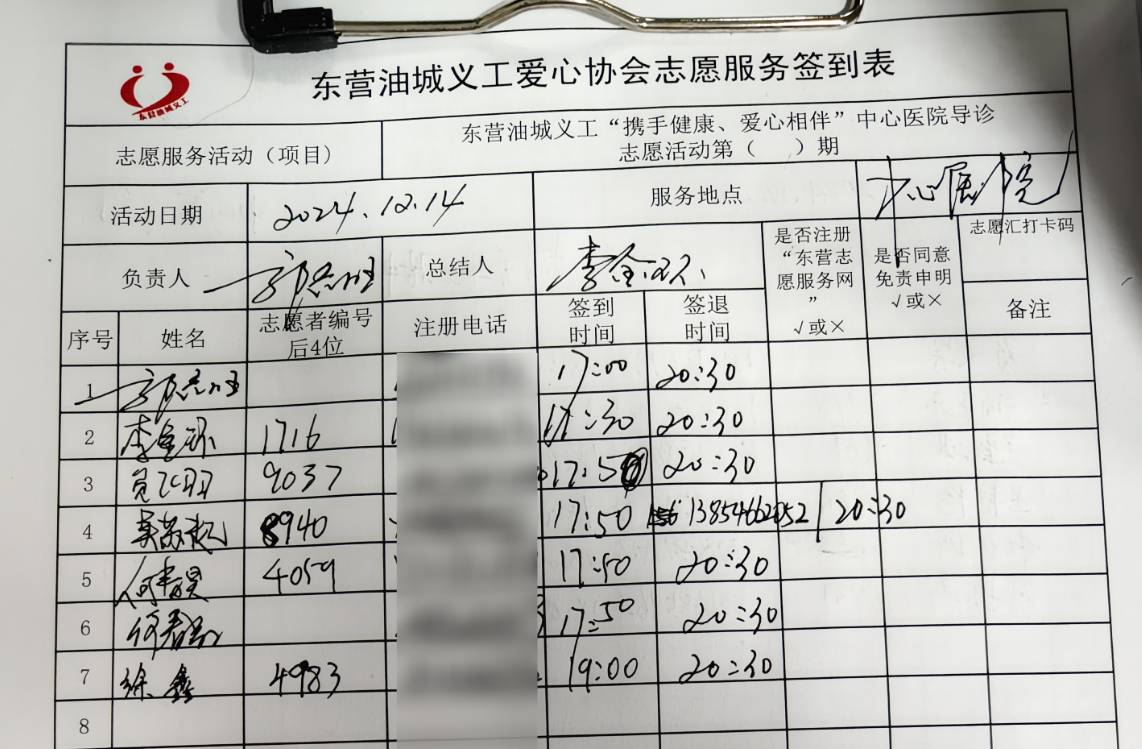 东营油城义工
东营油城义工爱心协会志愿服务签到表
志愿服务活动（项目）
东营油城义工“携手健康、爱心相伴”中心医院导诊
志愿活动第（ ）期
活动日期 2024.12.14 服务地点 中心医院
负责人 总结人
是否注册
“东营志
愿服务网
”
√或×
是否同意
免责申明
√或×
志愿汇打卡码
备注
序号 姓名 志愿者编号
后4位 注册电话 签到
时间 签退
时间
1 17:00 20:30
2 1716 17:30 20:30
3 9037 17:50 20:30
4 8940 17:50 13854662052 20:30
5 4059 17:50 20:30
6 17:50 20:30
7 徐鑫 4983 19:00 20:30
8